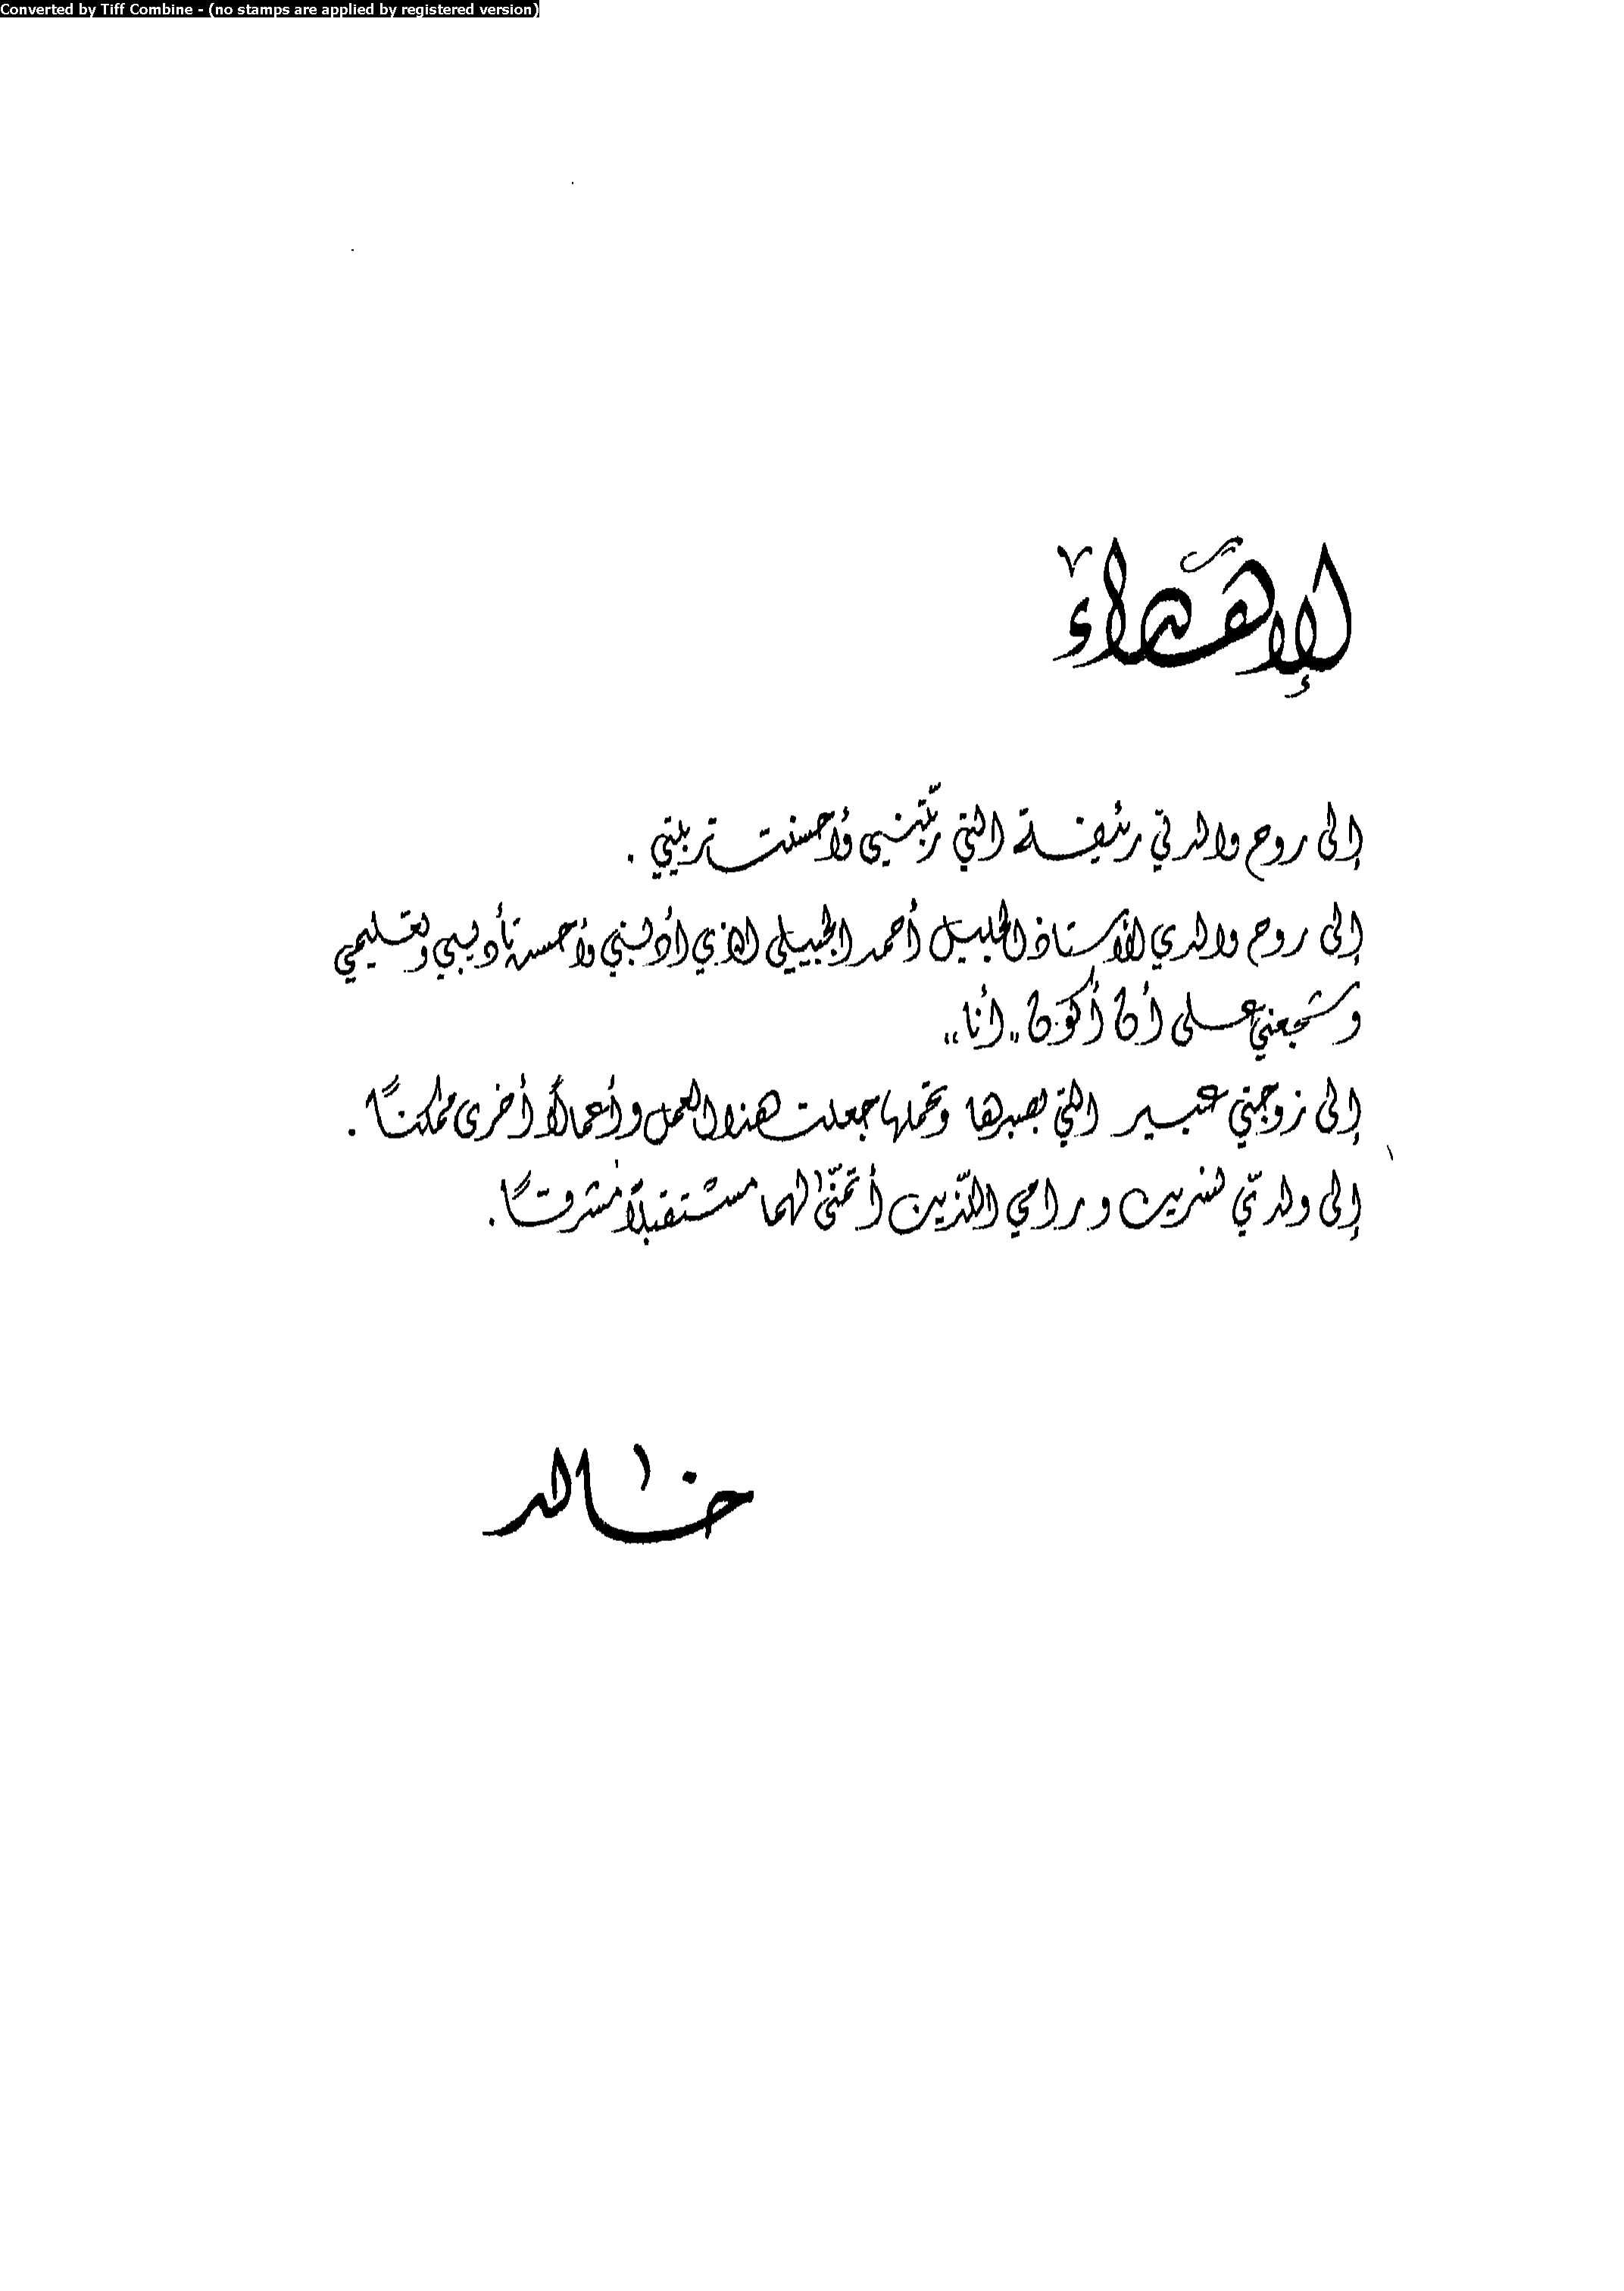 Converted by Tiff Combine - (no stamps are applied by registered version)
الإهداء
إلى روح والدتي رئيفة التي ربّتني وأحسنت تربيتي .
إلى روح والدي الأستاذ الجليل أحمد الجبيلي الذي أدبني وأحسن تأديبي وتعليمي
وشجعني على أن أكون "أنا"
إلى زوجتي عبير التي بصبرها وتحملها جعلت هذا العمل وأعمالاً أخرى ممكناً .
إلى ولديّ نسرين ورامي اللذين أتمنّى لهما مستقبلاً مشرقاً .
خالد